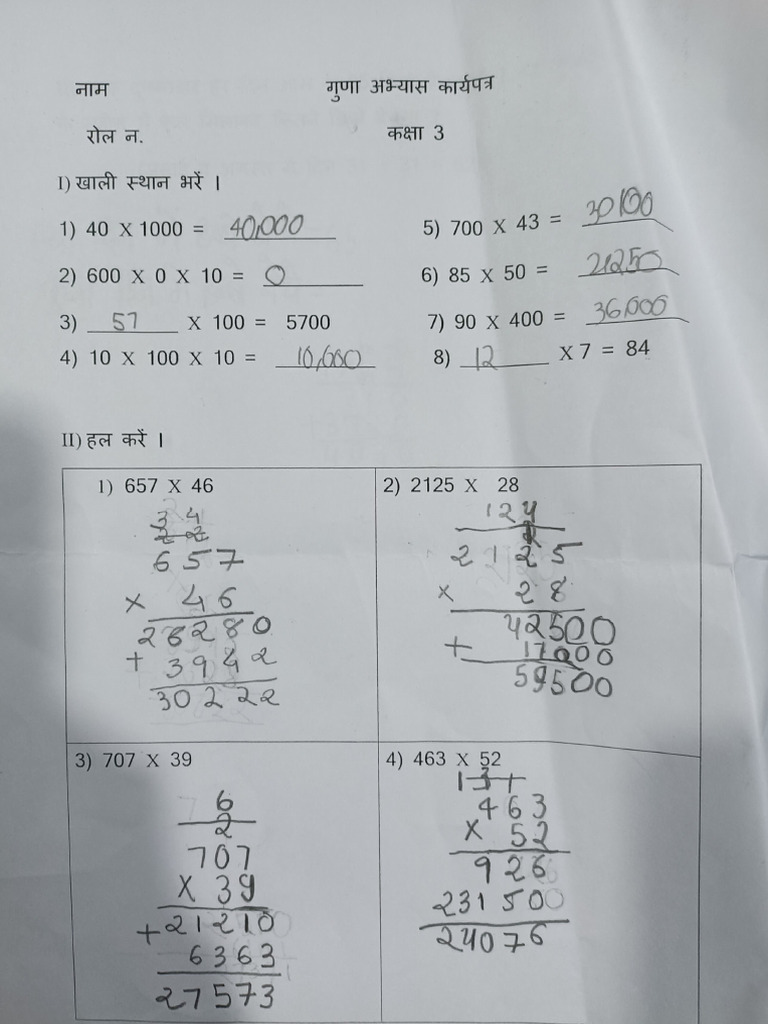 नाम गुणा अभ्यास कार्यपत्र
रोल न. कक्षा 3
I) खाली स्थान भरें ।
1) 40 X 1000 = 40,000
5) 700 X 43 = 30100
2) 600 X 0 X 10 = 0
6) 85 X 50 = 21250
3) 57 X 100 = 5700
7) 90 X 400 = 36,000
4) 10 X 100 X 10 = 10,000
8) 12 X 7 = 84
II) हल करें ।
1) 657 X 46
3 4
2 2
657
x 46
26280
+ 3942
30222
2) 2125 X 28
124
2125
x 28
42500
+ 17000
59500
3) 707 X 39
6
2
707
X 39
+21210
6363
27573
4) 463 X 52
131
463
X 52
926
23150
24076